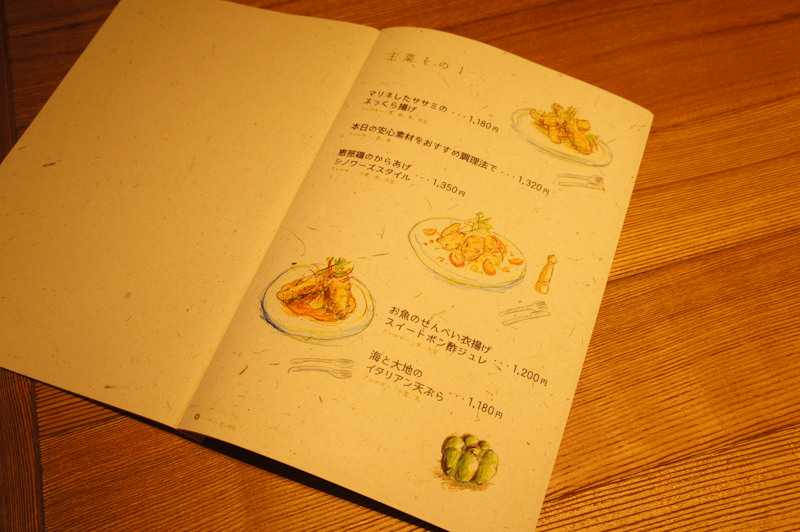 主菜その1
マリネしたササミの
ふっくら揚げ ･･･ 1,180円
本日の安心素材をおすすめ調理法で ･･･ 1,320円
恵那鶏のからあげ
シノワーズスタイル ･･･ 1,350円
お魚のせんべい衣揚げ
スイートポン酢ジュレ ･･･ 1,200円
海と大地の
イタリアン天ぷら ･･･ 1,180円